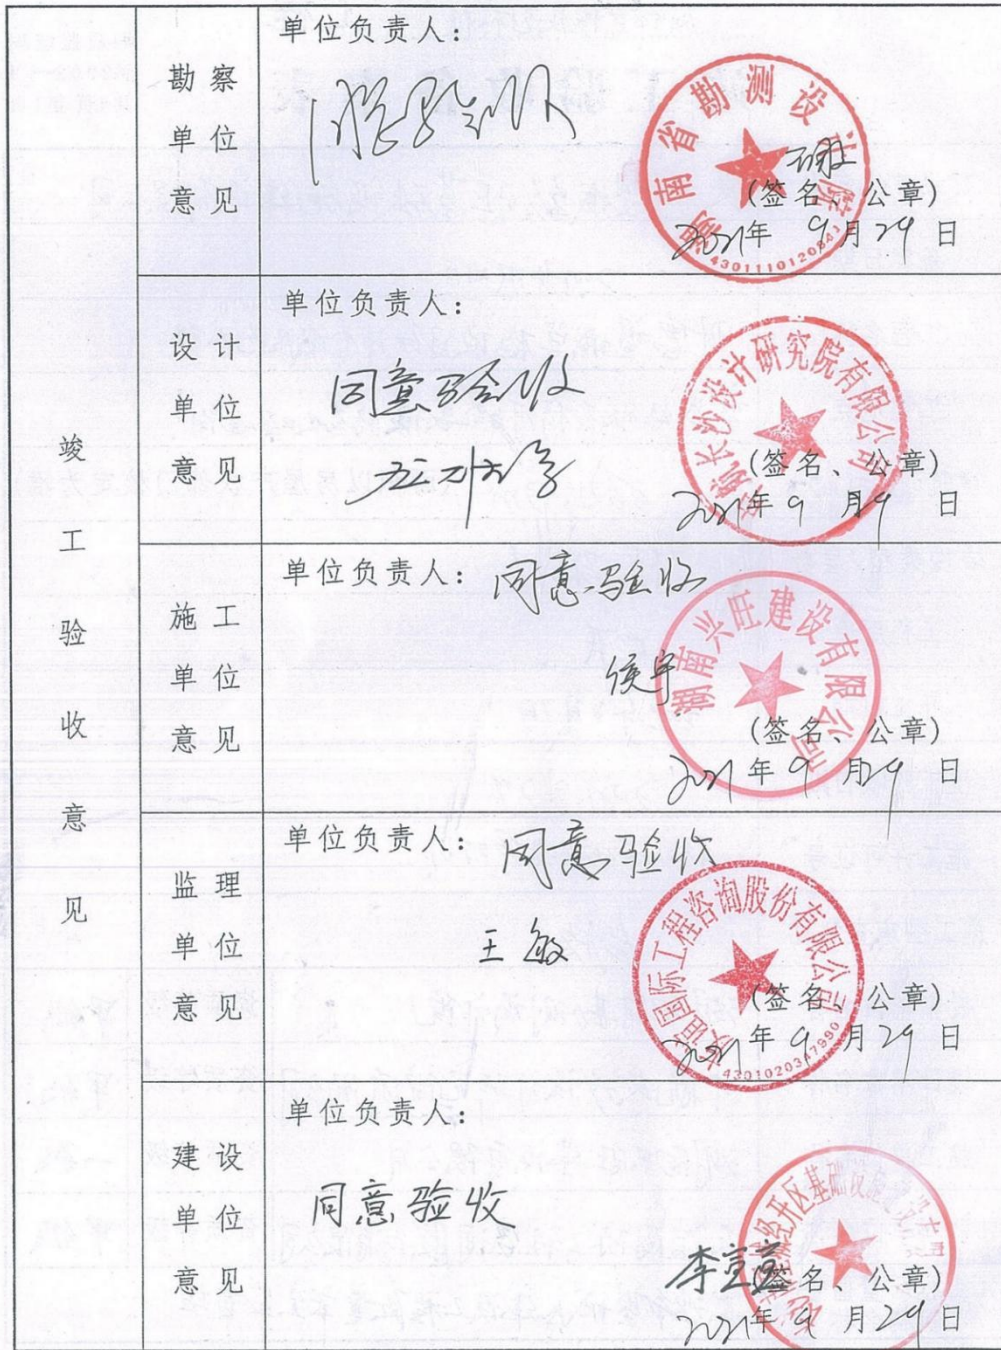 竣工验收意见
勘察单位意见
单位负责人：
湖南省勘测设计院
4301110120841
(签名、公章)
2021年 9月29日
设计单位意见
单位负责人：
同意验收
长沙设计研究院有限公司
(签名、公章)
2021年9月 日
施工单位意见
单位负责人：同意验收
侯宇
湖南兴旺建设有限公司
(签名、公章)
2021年9月29日
监理单位意见
单位负责人：同意验收
王敏
国际工程咨询股份有限公司
4301020347990
(签名、公章)
2021年9月29日
建设单位意见
单位负责人：
同意验收
经开区基础设
李
(签名、公章)
2021年9月29日